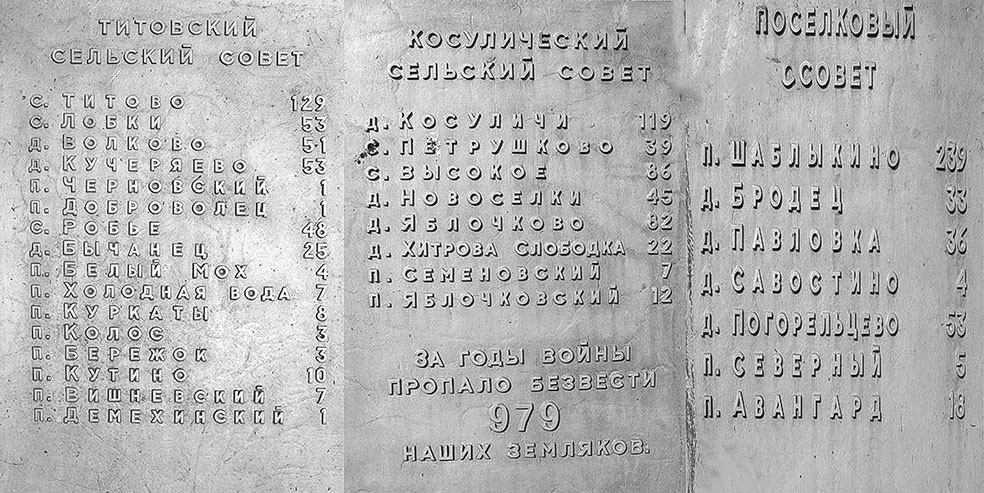 ТИТОВСКИЙ
СЕЛЬСКИЙ СОВЕТ
С. ТИТОВО 129
С. ЛОБКИ 53
Д. ВОЛКОВО 51
Д. КУЧЕРЯЕВО 53
П. ЧЕРНОВСКИЙ 1
П. ДОБРОВОЛЕЦ 1
С. РОБЬЕ 48
Д. БЫЧАНЕЦ 25
П. БЕЛЫЙ МОХ 4
П. ХОЛОДНАЯ ВОДА 7
П. КУРКАТЫ 8
П. КОЛОС 3
П. БЕРЕЖОК 3
П. КУТИНО 10
П. ВИШНЕВСКИЙ 7
П. ДЕМЕХИНСКИЙ 1
КОСУЛИЧЕСКИЙ
СЕЛЬСКИЙ СОВЕТ
Д. КОСУЛИЧИ 119
С. ПЕТРУШКОВО 39
С. ВЫСОКОЕ 86
Д. НОВОСЕЛКИ 45
Д. ЯБЛОЧКОВО 82
Д. ХИТРОВА СЛОБОДКА 22
П. СЕМЕНОВСКИЙ 7
П. ЯБЛОЧКОВСКИЙ 12
ЗА ГОДЫ ВОЙНЫ
ПРОПАЛО БЕЗВЕСТИ
979
НАШИХ ЗЕМЛЯКОВ.
ПОСЕЛКОВЫЙ
ССОВЕТ
П. ШАБЛЫКИНО 239
Д. БРОДЕЦ 33
Д. ПАВЛОВКА 36
Д. САВОСТИНО 4
Д. ПОГОРЕЛЬЦЕВО 53
П. СЕВЕРНЫЙ 5
П. АВАНГАРД 18